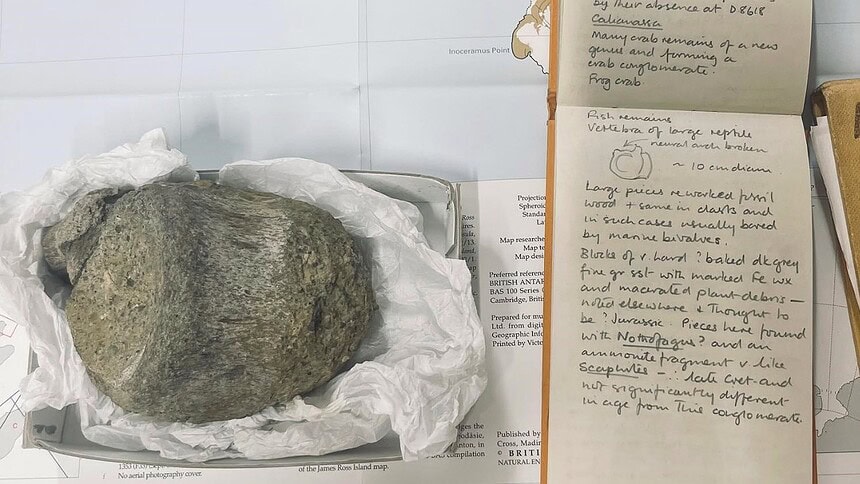 Inoceramus Point
by their absence at D8618
Callianassa
Many crab remains of a new
genus and forming a
crab conglomerate.
Frog crab
Fish remains
Vertebra of large reptile
neural arch broken
~ 10 cm diam.
Large pieces reworked fossil
wood + same in clasts and
in such cases usually bored
by marine bivalves.
Blocks of v. hard ? baked dk grey
fine gr sst with marked Fe wx
and macerated plant debris —
noted elsewhere & thought to
be ? Jurassic. Pieces here found
with Nothofagus? and an
ammonite fragment v. like
Scaphites — ∴ late Cret and
not significantly different
in age from this conglomerate.
Projection
Spheroid
Standard
Map researched
Map
Map
Preferred reference
BRITISH ANTAR
BAS 100 Series
Cambridge, Brit
Prepared for
Ltd. from digit
Geographic Info
Printed by Victo
Published by
Cross, Madin
© BRIT
NATURAL EN
Ross
1353
No aerial photography cover.
of the James Ross Island map.
compilation